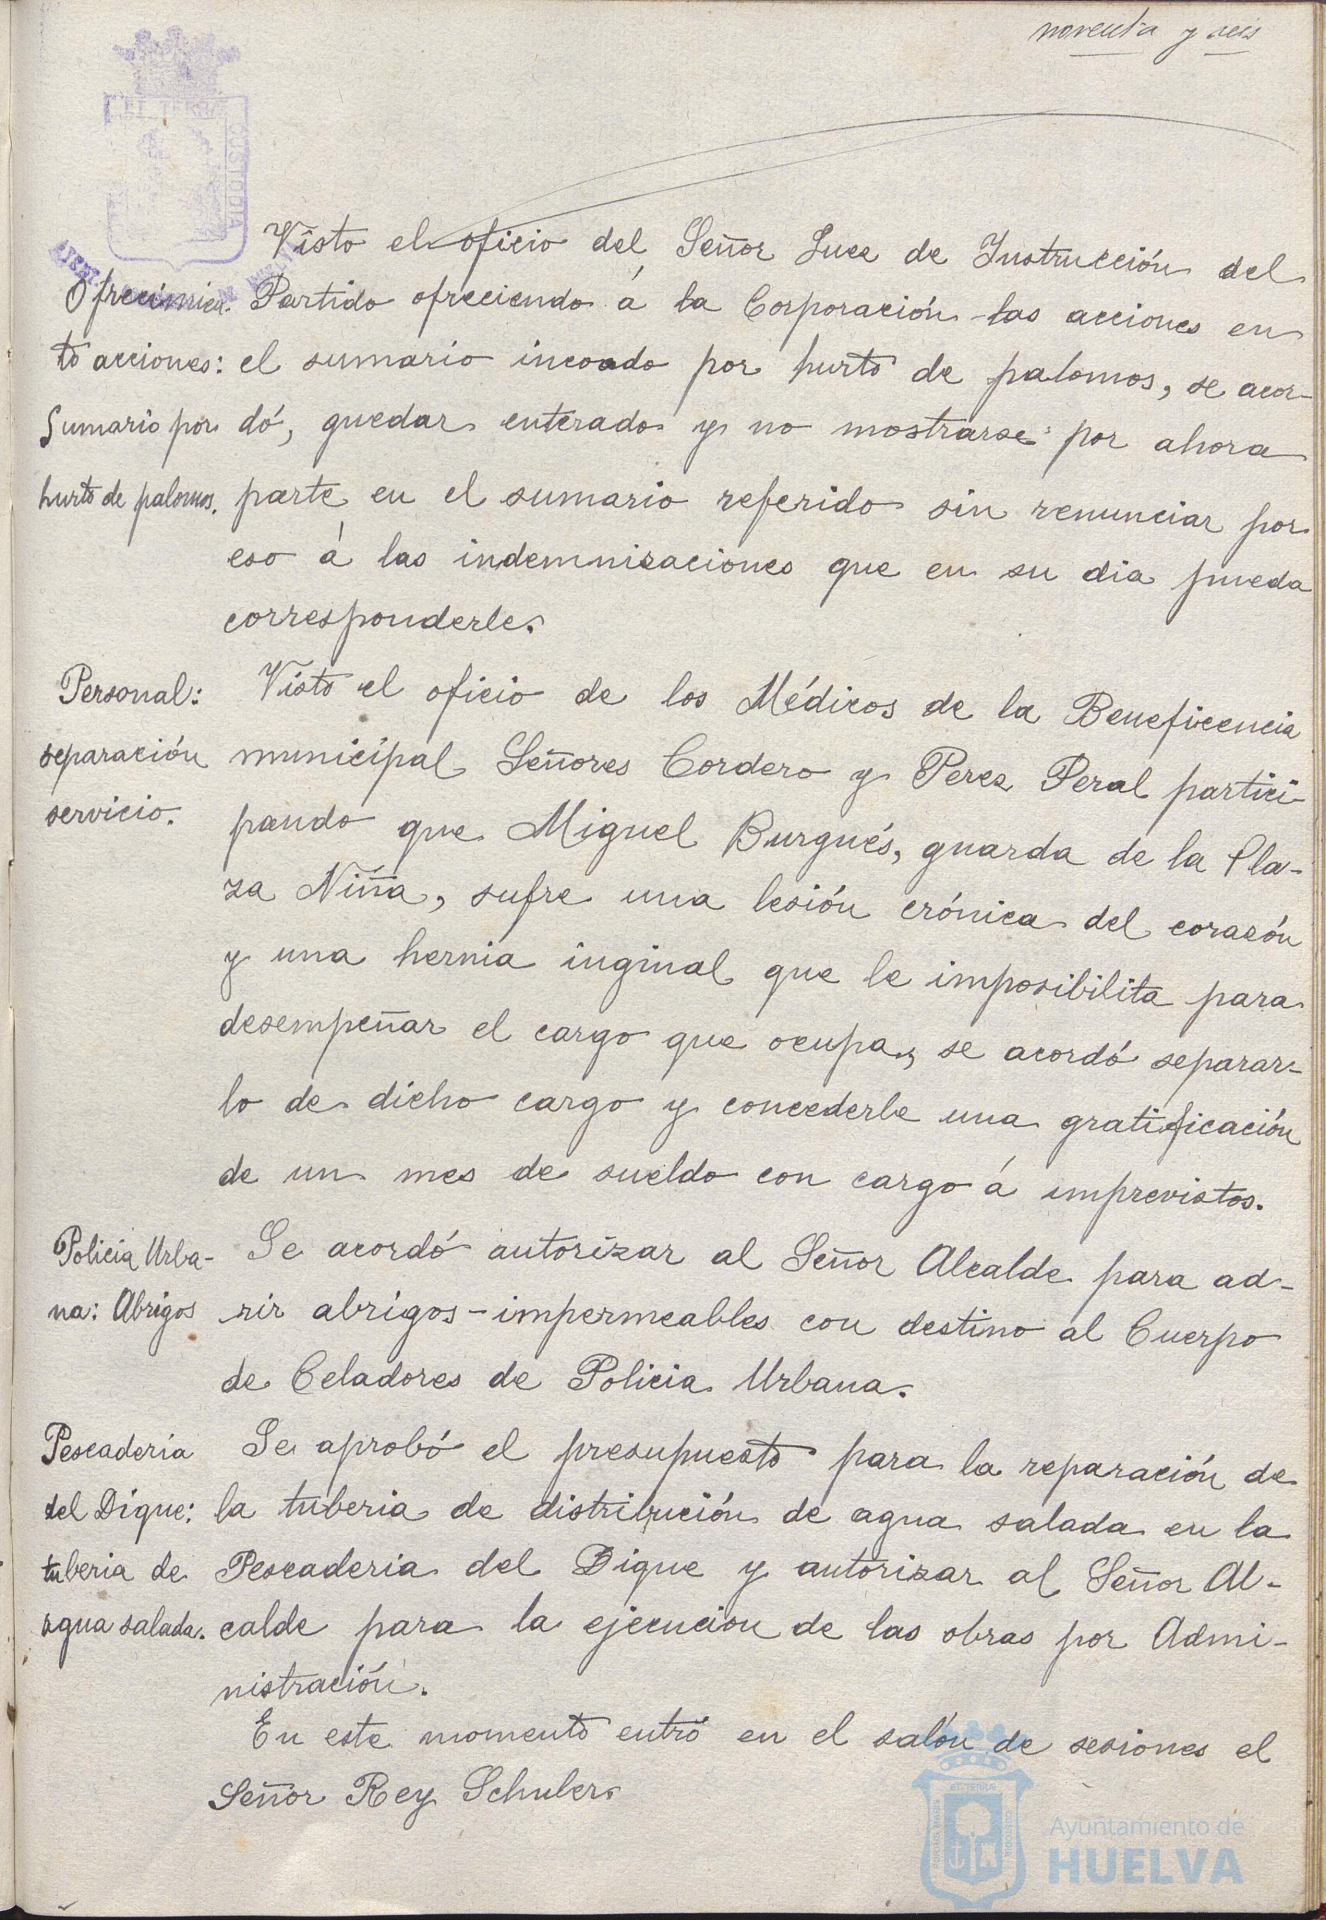 noventa y seis
ET TERRÆ
CUSTODIA
Visto el oficio del Señor Juez de Instrucción del
Ofrecimien- Partido ofreciendo á la Corporación las acciones en
to acciones: el sumario incoado por hurto de palomos, se acor-
Sumario por dó, quedar enterado y no mostrarse por ahora
hurto de palomos. parte en el sumario referido sin renunciar por
eso á las indemnizaciones que en su dia pueda
corresponderle.
Personal: Visto el oficio de los Médicos de la Beneficencia
separación municipal Señores Cordero y Perez Peral partici-
servicio. pando que Miguel Burgués, guarda de la Pla-
za Niña, sufre una lesión crónica del corazón
y una hernia inginal que le imposibilita para
desempeñar el cargo que ocupa, se acordó separar-
lo de dicho cargo y concederle una gratificación
de un mes de sueldo con cargo á imprevistos.
Policia Urba- Se acordó autorizar al Señor Alcalde para ad-
na: Abrigos rir abrigos-impermeables con destino al Cuerpo
de Celadores de Policia Urbana.
Pescaderia Se aprobó el presupuesto para la reparación de
del Dique: la tuberia de distribución de agua salada en la
tuberia de Pescaderia del Dique y autorizar al Señor Al-
agua salada. calde para la ejecucion de las obras por Admi-
nistración.
En este momento entró en el salón de sesiones el
Señor Rey Schuler.
Ayuntamiento de
HUELVA